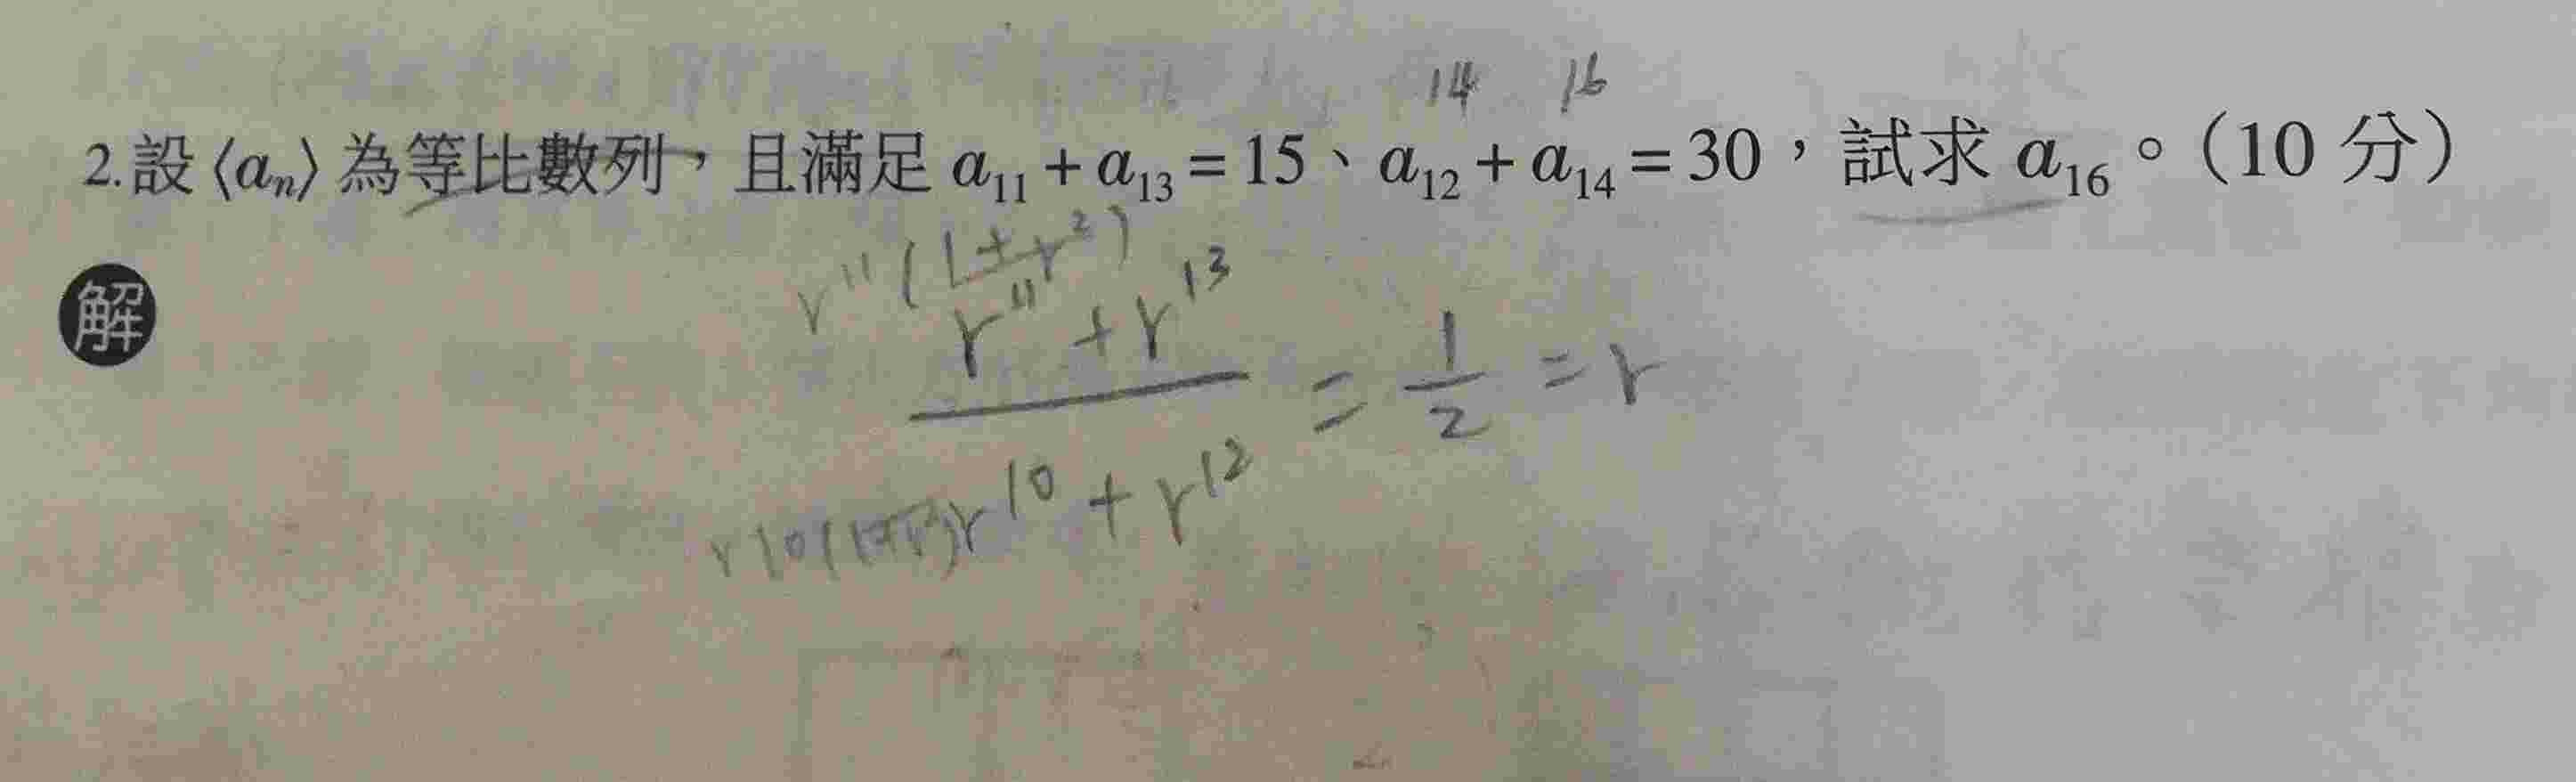 14 16
2.設⟨aₙ⟩為等比數列，且滿足 a₁₁ + a₁₃ = 15、a₁₂ + a₁₄ = 30，試求 a₁₆。（10 分）
解
r¹¹(1+r²)
r¹¹ + r¹³
= 1/2 = r
r¹⁰ + r¹²